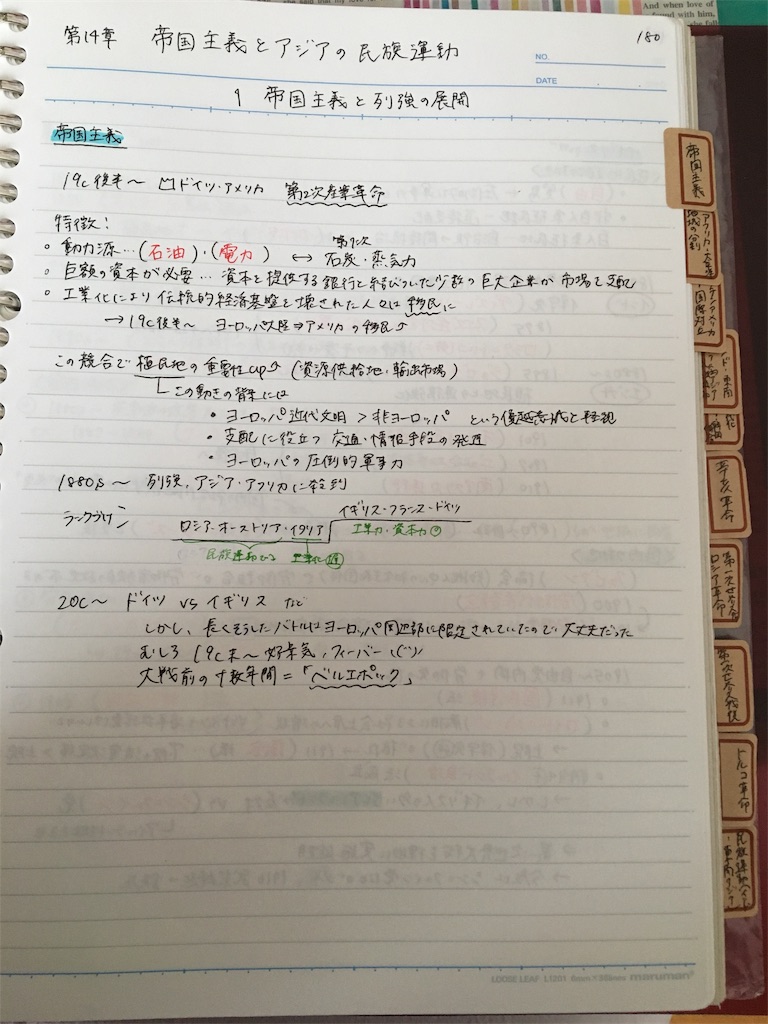 And when love of
found with him,
180
第14章 帝国主義とアジアの民族運動
NO.
DATE
1 帝国主義と列強の展開
帝国主義
19c後半〜 ドイツ・アメリカ 第2次産業革命
特徴:
第1次
◦ 動力源…(石油)・(電力) ↔ 石炭・蒸気力
◦ 巨額の資本が必要… 資本を提供する銀行と結びついた少数の巨大企業が市場を支配
◦ 工業化により伝統的経済基盤を壊された人々は移民に
→19c後半〜 ヨーロッパ大陸⇒アメリカの移民↑
この競合で植民地の重要性up↑ (資源供給地・輸出市場)
この動きの背景には
• ヨーロッパ近代文明 > 非ヨーロッパ という優越意識と軽視
• 支配に役立つ交通・情報手段の発達
• ヨーロッパの圧倒的軍事力
1880s〜 列強、アジア・アフリカに殺到
イギリス・フランス・ドイツ
ランクづけ ロシア・オーストリア・イタリア 工業力・資本力
民族運動 工業化 遅
20c〜 ドイツ vs イギリス など
しかし、長くそうしたバトルはヨーロッパ周辺部に限定されていたので大丈夫だった
むしろ 19c末〜 好景気、フィーバー
大戦前の十数年間=「ベルエポック」
帝国主義
アフリカ・太平洋
地域の分割
ラテンアメリカ
・国際対立
辛亥革命
第一次世界大戦
ロシア革命
トルコ革命
LOOSE LEAF L1201 maruman